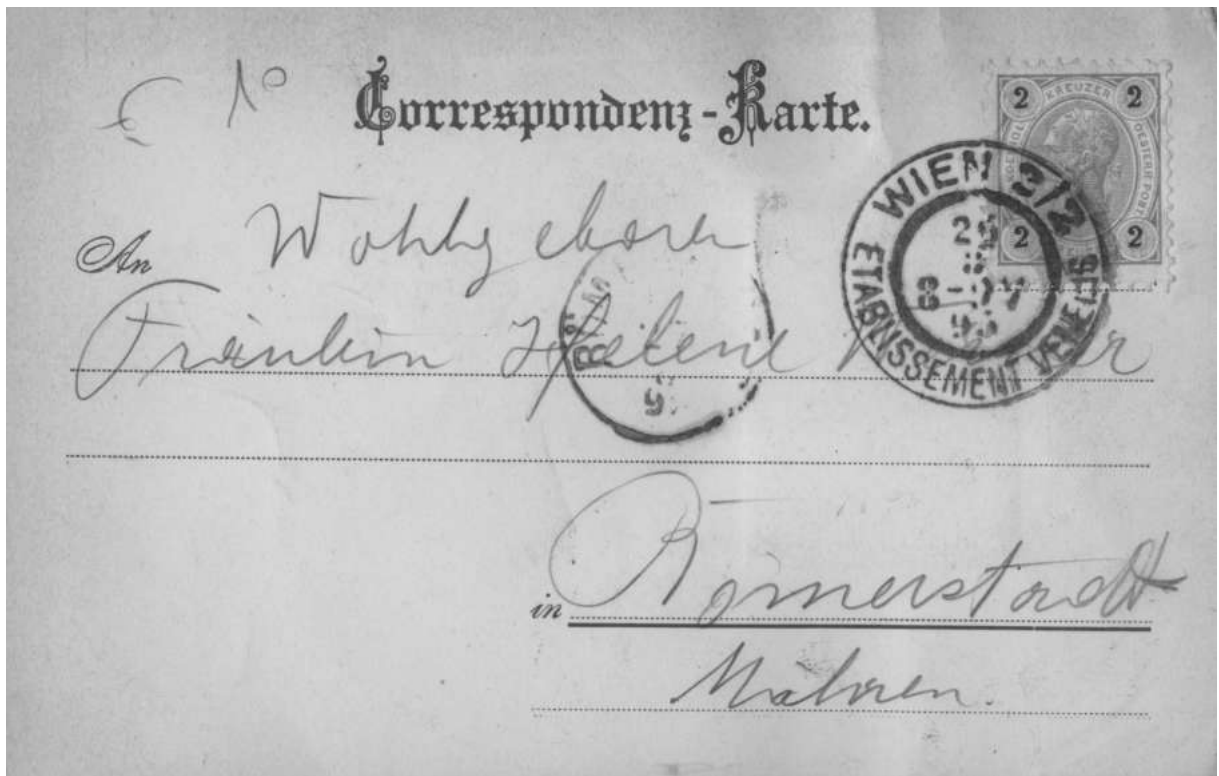 Correspondenz-Karte.
2 KREUZER 2
2 2
WIEN 3/2
ETABLISSEMENT VENEDIG
An Wohlgeboren
Fräulein Helene
in Römerstadt
Mähren.